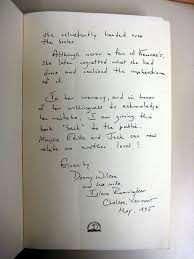 she reluctantly handed over
the books.
Although never a fan of Kerouac's,
she later regretted what she had
done and realized the implications
of it.
In her memory, and in honor
of her willingness to acknowledge
her mistake, I am giving this
book "back" to the public.
Maybe Edith and Jack can now
relate on another level!
Given by
Danny Wilson
and his wife,
Chelsea, Vermont
May, 1995